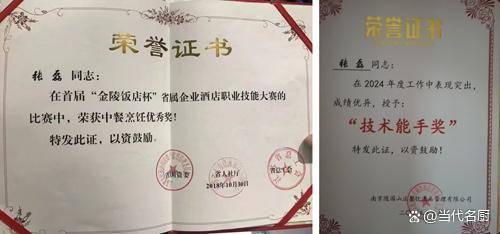 荣誉证书
张磊 同志:
在首届“金陵饭店杯”省属企业酒店职业技能大赛的
比赛中,荣获中餐烹饪优秀奖!
特发此证,以资鼓励。
省国资委
省人社厅
省总工会
2018年10月30日
荣誉证书
张磊 同志:
在2024年度工作中表现突出,
成绩优异,授予:
“技术能手奖”
特发此证,以资鼓励!
@当代名厨